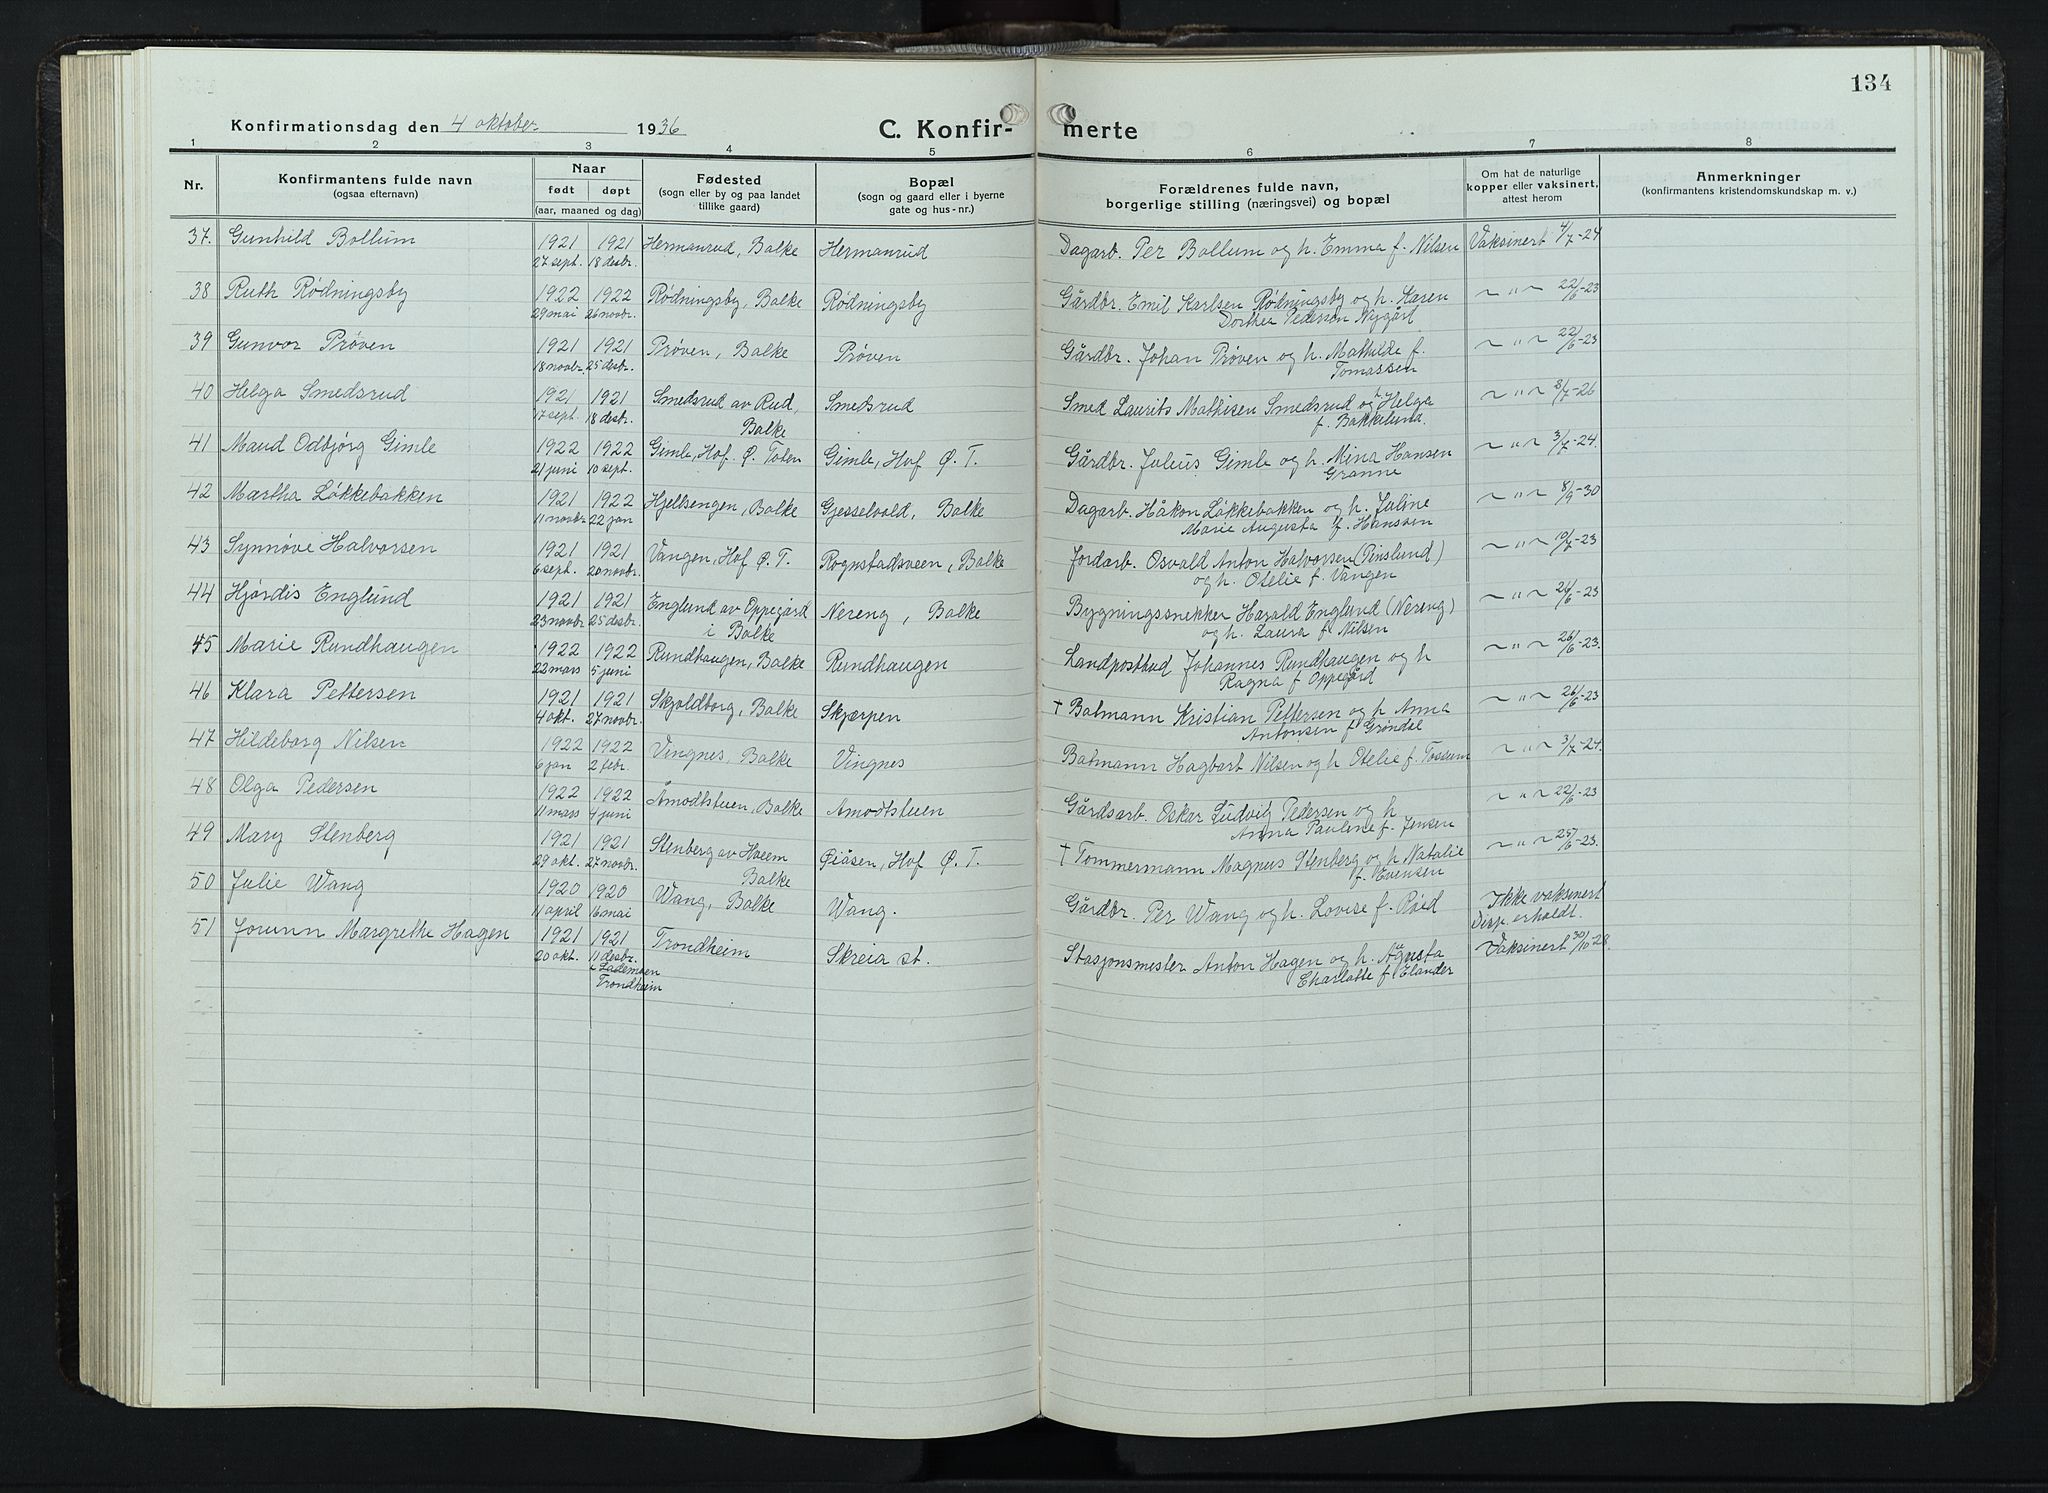 134
Konfirmationsdag den 4 oktober 1936 C. Konfir- merte
1 2 3 4 5 6 7 8
Nr. Konfirmantens fulde navn (ogsaa efternavn) Naar født døpt (aar, maaned og dag) Fødested (sogn eller by og paa landet tillike gaard) Bopæl (sogn og gaard eller i byerne gate og hus-nr.) Forældrenes fulde navn, borgerlige stilling (næringsvei) og bopæl Om hat de naturlige kopper eller vaksinert, attest herom Anmerkninger (konfirmantens kristendomskundskap m. v.)
37. Gunhild Bollum 1921 1921 Hermanrud, Balke Hermanrud Dagarb. Per Bollum og h. Emma f. Nilsen Vaksinert 4/7-24
27 sept. 18 desbr.
38 Ruth Rødningsby 1922 1922 Rødningsby, Balke Rødningsby Gårdbr. Emil Karlsen Rødningsby og h. Karen ~ " ~ 22/6-23
29 mai 26 novbr. Dorthea Pederson Nygård
39 Gunvor Prøven 1921 1921 Prøven, Balke Prøven Gårdbr. Johan Prøven og h. Mathilde f. ~ " ~ 22/6-23
18 novbr. 25 desbr. Tomassen
40 Helga Smedsrud 1921 1921 Smedsrud av Rud, Smedsrud Smed Laurits Mathisen Smedsrud og h. Helga ~ " ~ 8/7-26
17 sept. 18 desbr. Balke f. Bakkelund.
41 Maud Odbjørg Gimle 1922 1922 Gimle, Hof. Ø. Toten Gimle, Hof Ø. T. Gårdbr. Julius Gimle og h. Mina Hansen ~ " ~ 3/7-24.
21 juni 10 sept. Granne
42 Martha Løkkebakken 1921 1922 Hjellsengen, Balke Gjesselvold, Balke Dagarb. Håkon Løkkebakken og h. Juline ~ " ~ 8/9-30
11 novbr. 22 jan Marie Augusta f. Hanssen
43 Synnøve Halvorsen 1921 1921 Vangen, Hof Ø. T. Rognstadsveen, Balke Jordarb. Osvald Anton Halvorsen (Pinslund) ~ " ~ 10/7-23
6 sept. 20 novbr. og h. Otelie f. Vangen
44 Hjørdis Englund 1921 1921 Englund av Oppegård Nereng, Balke Bygningssnekker Harald Englund (Nereng) ~ " ~ 26/6-23
23 novbr 25 desbr. i Balke og h. Laura f. Nilsen
45 Marie Rundhaugen 1922 1922 Rundhaugen, Balke Rundhaugen Landpostbud Johannes Rundhaugen og h ~ " ~ 26/6-23.
22 mars 5 juni Ragna f Oppegård
46 Klara Pettersen 1921 1921 Skjoldborg, Balke Skjærpen † Batmann Kristian Pettersen og h Anna ~ " ~ 26/6-23
4 okt. 27 novbr. Antonsen f Grøndal
47 Hildeborg Nilsen 1922 1922 Vingnes, Balke Vingnes Batmann Hagbart Nilsen og h Otelie f. Tossum ~ " ~ 3/7-24.
6 jan 2 febr.
48 Olga Pedersen 1922 1922 Åmodtstuen, Balke Åmodtstuen Gårdsarb. Oskar Ludvig Pedersen og h ~ " ~ 22/6-23
11 mars 4 juni Anna Pauline f. Jensen
49 Mary Stenberg 1921 1921 Stenberg av Hveem Øiåsen, Hof Ø. T. † Tømmermann Magnus Stenberg og h Natalie ~ " ~ 25/6-23.
29 okt. 27 novbr. Balke f. Evensen
50 Julie Wang 1920 1920 Wang, Balke Wang. Gårdbr. Per Wang og h. Lovise f. Røed Ikke vaksinert
11 april 16 mai Disp. erholdt.
51 Jorunn Margrethe Hagen 1921 1921 Trondheim Skreia st. Stasjonsmester Anton Hagen og h. Agusta Vaksinert 30/10-28.
20 okt. 11 desbr. Charlotte f Elander
i Lademoen
Trondheim